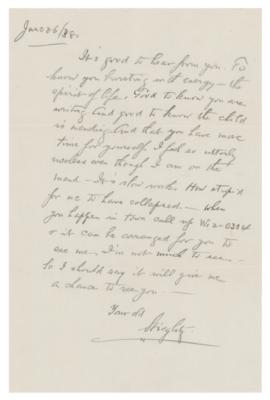 June 26/38.
It's good to hear from you. To
know you bursting with energy — the
spirit of life. Good to know you are
writing. And good to know the child
is mending. And that you have more
time for yourself. I feel so utterly
useless even though I am on the
mend — It's slow work. How stupid
for me to have collapsed — When
you happen in town call up Wi 2-0304
or it can be arranged for you to
see me. I'm not much to see —
So I should say it will give me
a chance to see you —
Your old
Stieglitz